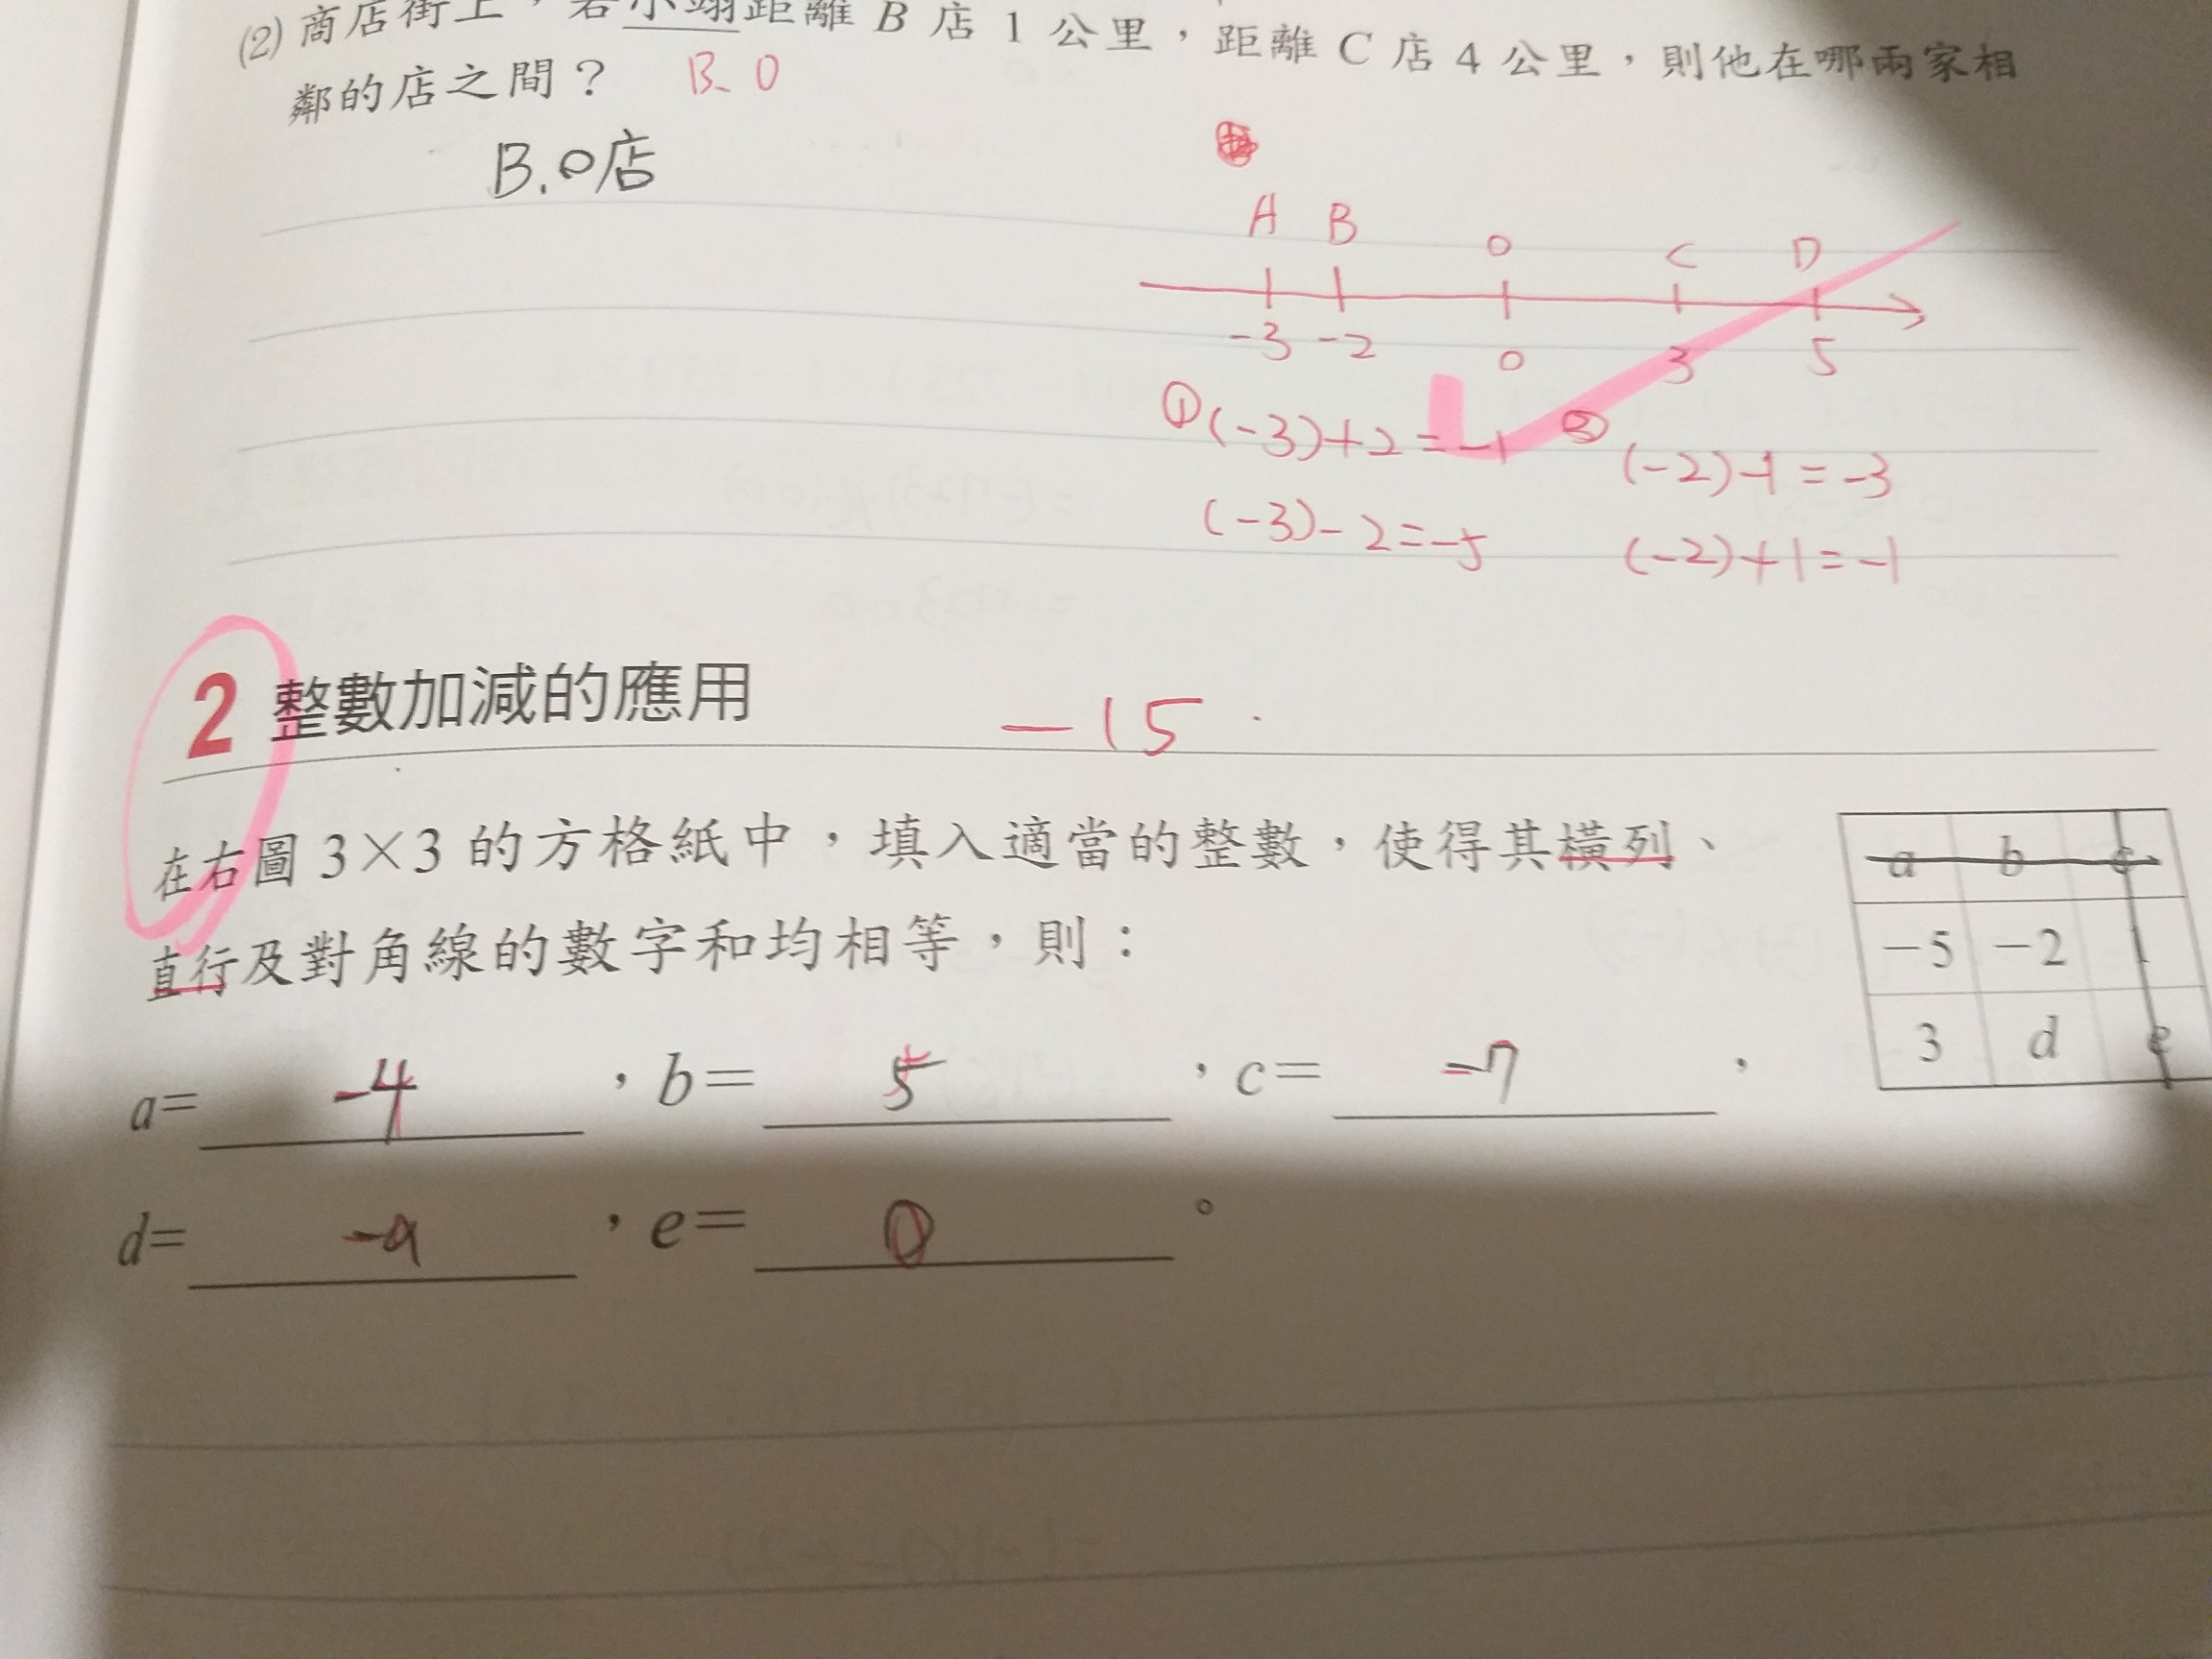 (2) 商店街上，若小翊距離 B 店 1 公里，距離 C 店 4 公里，則他在哪兩家相
鄰的店之間？ B、O
B.O店
A B O C D
-3 -2 0 3 5
①(-3)+2=-1 ② (-2)-1=-3
(-3)-2=-5 (-2)+1=-1
2 整數加減的應用 -15
在右圖 3×3 的方格紙中，填入適當的整數，使得其橫列、
直行及對角線的數字和均相等，則：
a b c
-5 -2 1
3 d e
a= -4 ，b= 5 ，c= -7 ，
d= -9 ，e= 0 。